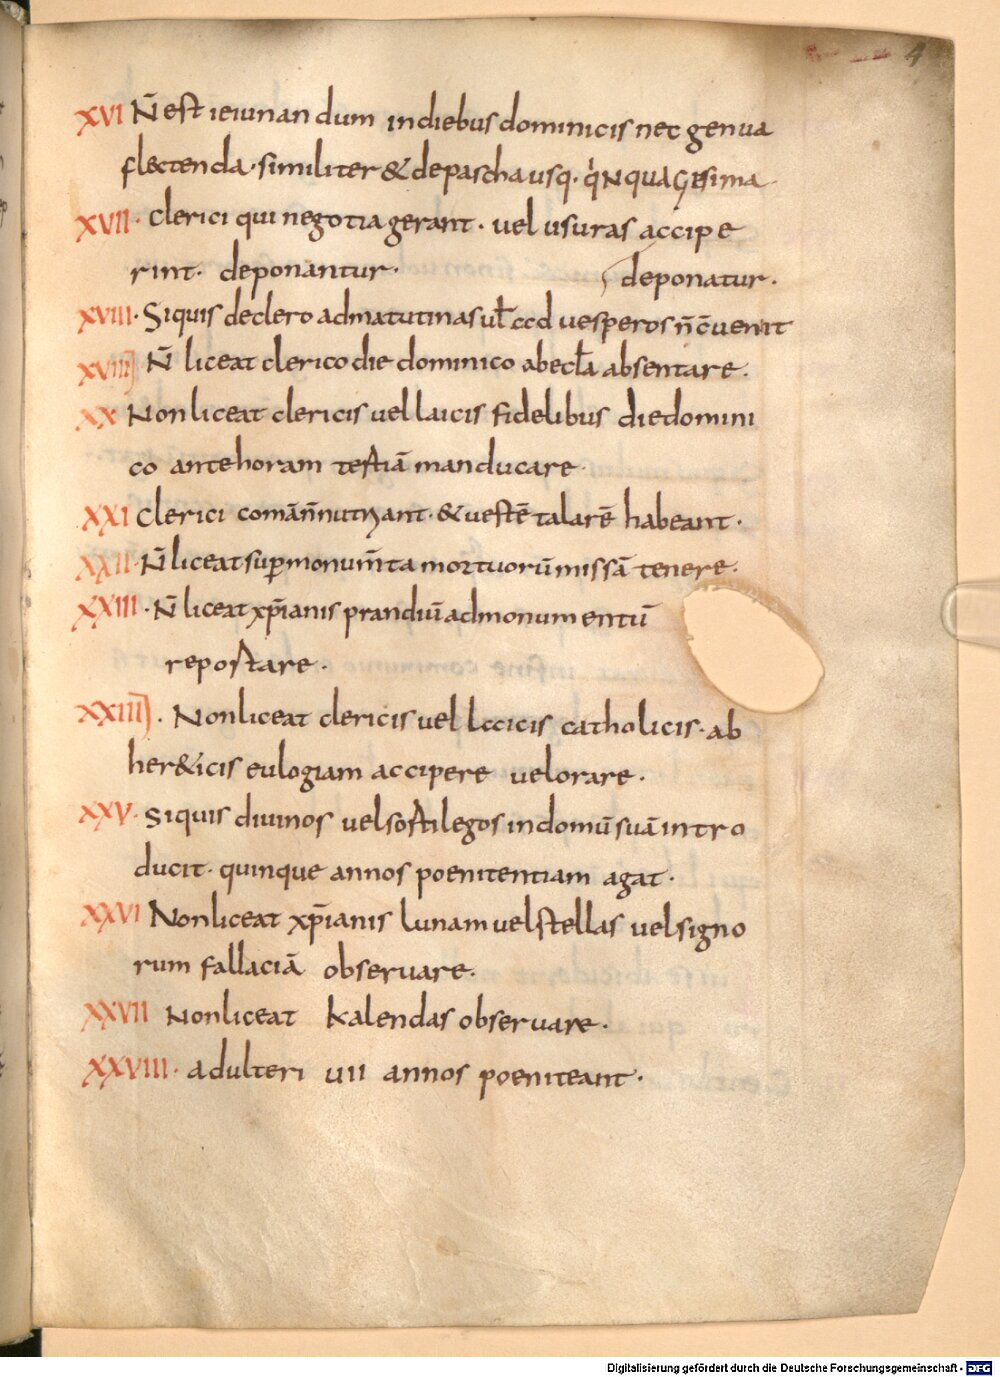 4
XVI N̄ est ieiunandum in diebus dominicis nec genua
flectenda · similiter & de pascha usq· q̇Nquagesima
XVII · Clerici qui negotia gerant · vel usuras accipe
rint · deponantur · deponatur ·
XVIII · Siquis de clero ad matutinas ul̄ ad vesperos n̄ c̄venit
XVIIII N̄ liceat clerico die dominico ab eccl̄a absentare ·
XX Non liceat clericis vel laicis fidelibus die domini
co ante horam tertiā manducare ·
XXI Clerici comā n̄ nutriant · & vestē talarē habeant ·
XXII · N̄ liceat sup̱ monum̄ta mortuorū missā tenere ·
XXIII · N̄ liceat xp̄ianis prandiū ad monumentū
reportare ·
XXIIII · Non liceat clericis vel laicis catholicis · ab
her&icis eulogiam accipere vel orare ·
XXV · Siquis divinos vel sortilegos in domū suā intro
ducit · quinque annos poenitentiam agat ·
XXVI Non liceat xp̄ianis lunam vel stellas vel signo
rum fallaciā observare ·
XXVII Non liceat kalendas observare ·
XXVIII · adulteri uii annos poeniteant ·
Digitalisierung gefördert durch die Deutsche Forschungsgemeinschaft - DFG